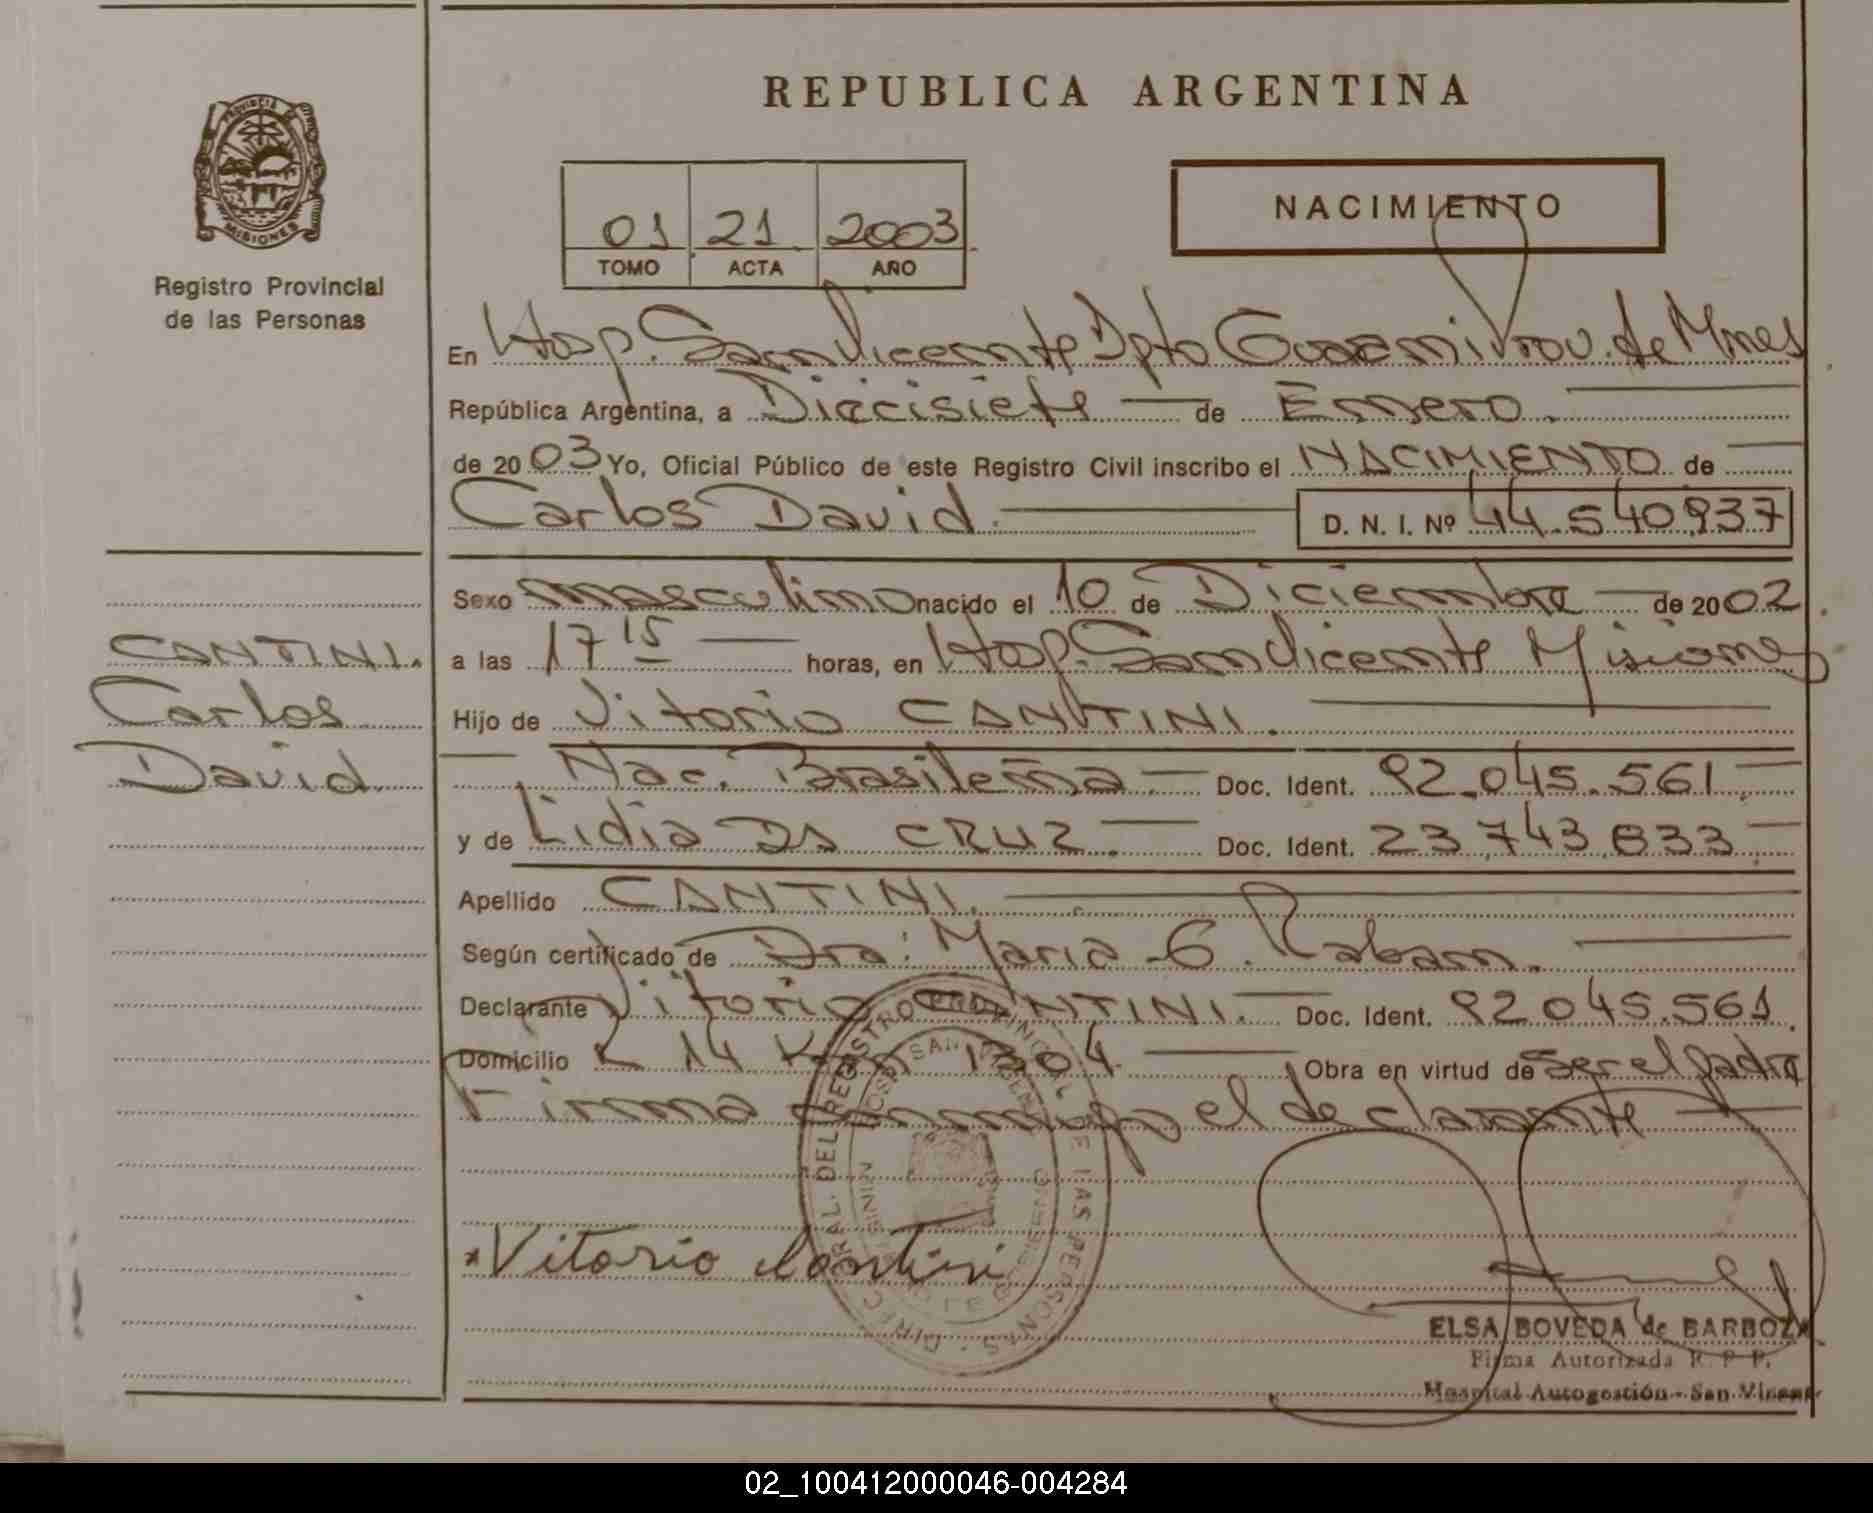 REPUBLICA ARGENTINA
PROVINCIA DE
MISIONES
Registro Provincial
de las Personas
01 21 2003
TOMO ACTA AÑO
NACIMIENTO
En Hosp. San Vicente Dpto Guarani Prov. de Mnes
República Argentina, a Diecisiete de Enero.
de 20 03 Yo, Oficial Público de este Registro Civil inscribo el NACIMIENTO de
Carlos David. D. N. I. Nº 44.540.937
Sexo masculino nacido el 10 de Diciembre de 20 02.
a las 17 15 horas, en Hosp. San Vicente Misiones
Hijo de Vitorio CANTINI.
Nac. Brasileña Doc. Ident. 92.045.561.
y de Lidia DA CRUZ. Doc. Ident. 23.743.833.
Apellido CANTINI.
Según certificado de Dra: Maria G. Raban.
Declarante Vitorio CANTINI. Doc. Ident. 92.045.561.
Domicilio L 14 Km 1304 Obra en virtud de ser el padre
Firma conmigo el declarante
CANTINI.
Carlos
David
*Vitorio Cantini
ELSA BOVEDA de BARBOZA
Firma Autorizada R. P. P.
Hospital Autogestión - San Vicente
02_100412000046-004284